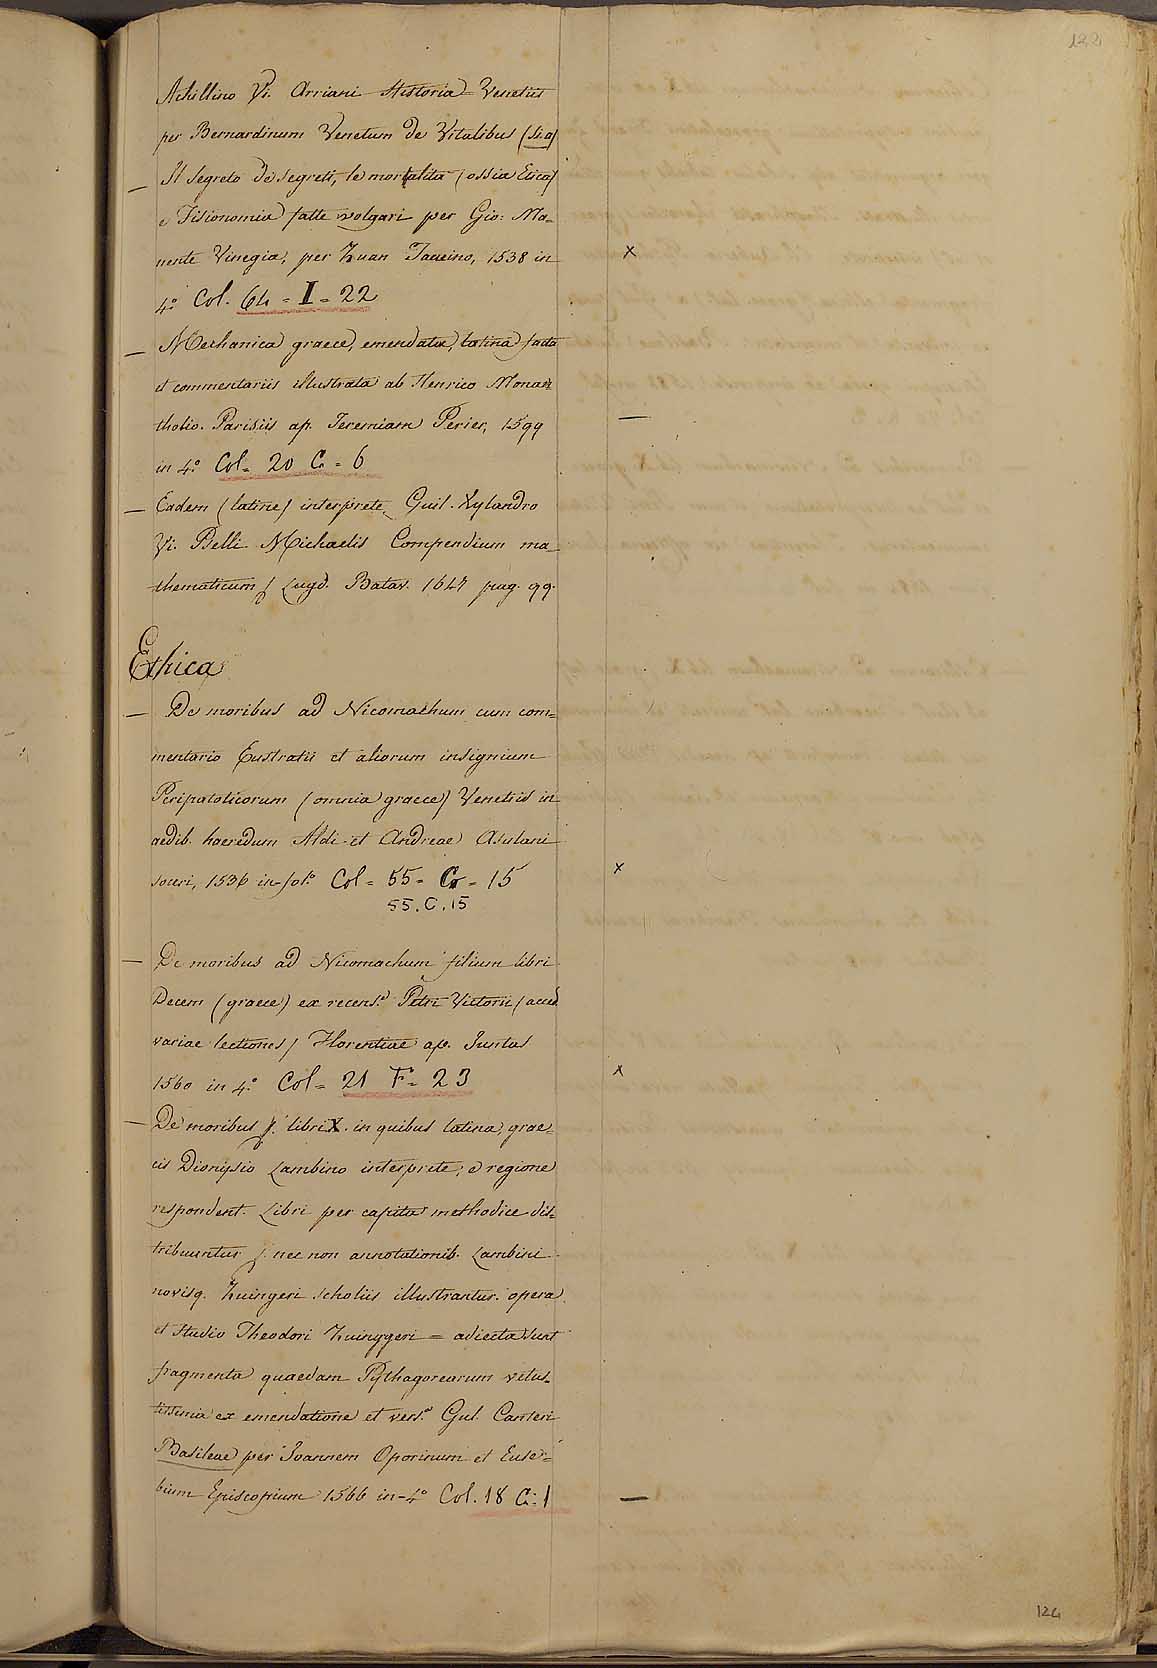 122
Achillino Vi. Arriani Historia Venetiis
per Bernardinum Venetum de Vitalibus (sia)
— Il segreto de segreti, le moralità (ossia Etica)
e Fisionomia fatte volgari per Gio: Ma=
nente Vinegia, per Zuan Tacuino, 1538 in
x
4.° Col. 64 = I = 22
— Mechanica graece, emendata, latina facta
et commentariis illustrata ab Henrico Monan
tholio. Parisiis ap. Ieremiam Perier, 1599
—
in 4.° Col = 20 C = 6
— Eadem (latine) interprete Guil. Xylandro
Vi. Belli Michaelis Compendium ma
thematicum Lugd. Batav. 1647 pag. 99.
Ethica
— De moribus ad Nicomachum cum com=
mentario Eustratii et aliorum insignium
Peripateticorum (omnia graece) Venetiis in
aedib. haeredum Aldi et Andreae Asulani
soceri, 1536 in fol.° Col = 55 = C = 15
x
55. C. 15
— De moribus ad Nicomachum filium libri
Decem (graece) ex recens.e Petri Victorii (acced
variae lectiones) Florentiae ap. Juntas
1560 in 4.° Col = 21 F = 23
x
— De moribus libri X. in quibus latina, grae=
cis Dionysio Lambino interprete, e regione
respondent. Libri per capita methodice dis=
tribuuntur nec non annotationib. Lambini
novisq. Zuingeri scholiis illustrantur. opera
et studio Theodori Zuinggeri = adiecta sunt
fragmenta quaedam Pythagorearum vetus=
tissima ex emendatione et vers.e Gul. Canteri
Basileae per Ioannem Oporinum et Euse=
bium Episcopium 1566 in-4.° Col. 18 C. 1
—
124